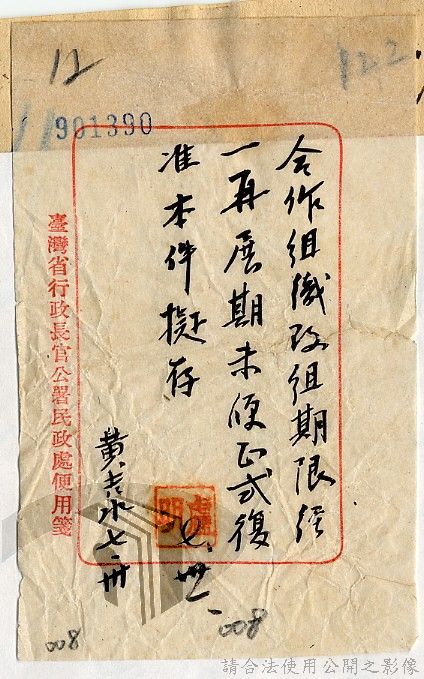 12
122
901390
合作組織改組期限經
一再展期未便正式復
准本件擬存
黃吉水 七、卅
七、卅一、
臺灣省行政長官公署民政處便用箋
008
008
請合法使用公開之影像